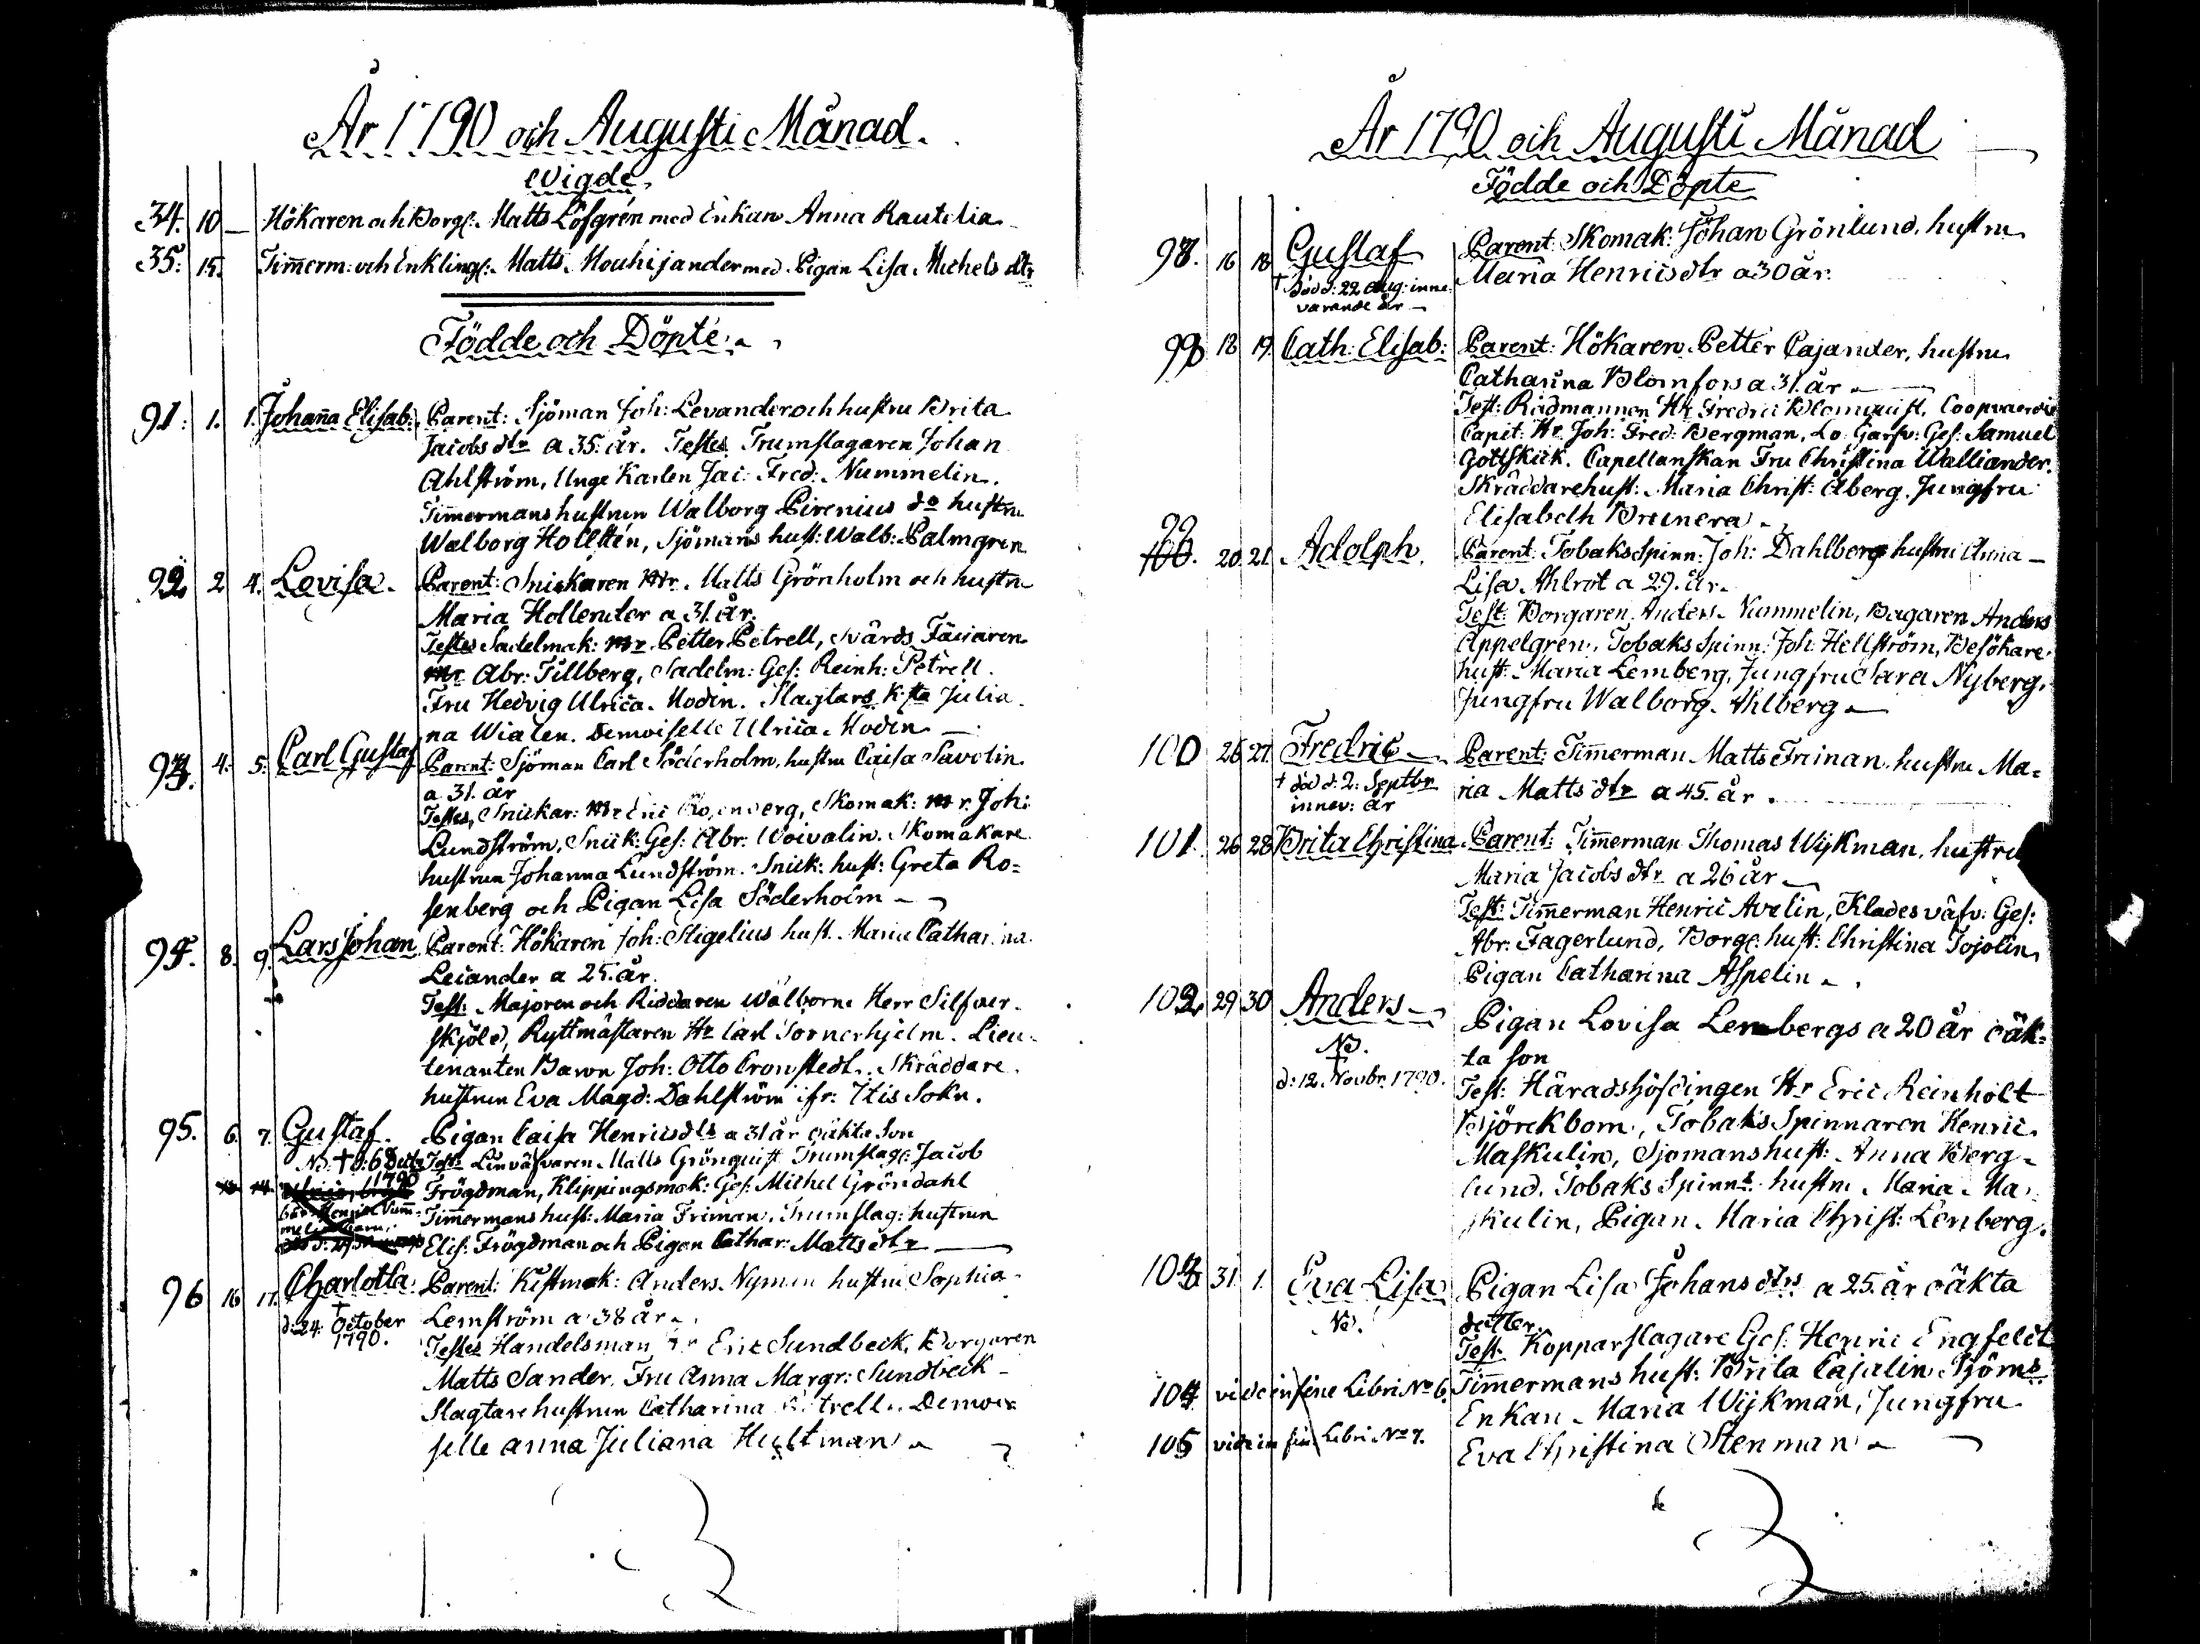 År 1790 och Augusti Månad.
Wigde
34. 10 — Hökaren och Borg: Matts Löfgrén med Enkan Anna Rautelia
35. 15. Timmerm: och Enkling: Matts Mouhijander med Pigan Lisa Michels dtr
Födde och Döpte
91. 1. 1. Johanna Elisab: Parent: Sjöman Joh: Levander och hustru Brita
Jacobs dtr a 35. år. Testes Trumslagaren Johan
Ahlström, Unge Karlen Jac: Fred: Nummelin.
Timmermans hustrun Walborg Pirenius do hustru
Walborg Hollstén, Sjömans hust: Walb: Palmgren
92 2 4. Lovisa. Parent: Snickaren Mr. Matts Grönholm och hustru
Maria Hollender a 31. år.
Testes Sadelmak: Mr Petter Petrell, Svärds Fäjaren
Mr Abr: Tillberg, Sadelm: Ges: Reinh: Petrell.
Fru Hedvig Ulrica Modin. Slagtars K:sta Julia
na Wialen. Demoiselle Ulrica Modin —
93. 4. 5. Carl Gustaf Parent: Sjöman Carl Söderholm, hustru Caisa Savolin
a 31. år
Testes, Snickar: Mr Eric Rosenberg, Skomak: Mr. Joh:
Lundström, Snick: Ges: Abr: Woivalin. Skomakare
hustrun Johanna Lundström. Snick: hust: Greta Ro=
senberg och Pigan Lisa Söderholm —
94. 8. 9. Lars Johan Parent: Hökaren Joh: Stigelius hust. Maria Catharina
Leiander a 25. år.
Test: Majoren och Riddaren Wälborne Herr Silfver
skjöld, Ryttmästaren Hr Carl Tornerhjelm. Lieu=
tenanten Baron Joh: Otto Cronstedt. Skräddare
hustrun Eva Magd: Dahlström ifr: Itis Sokn.
95. 6. 7. Gustaf. Pigan Caisa Henricsdtr a 31 år oäkta Son
No: † d: 6 1790 Test: Linväfvaren Matts Grönquist Trumslag: Jacob
Frögdman, Klippingsmak: Ges: Michel Gröndahl
Timmermans hust: Maria Friman, Trumslag: hustrun
Elis: Frögdman och Pigan Cathar: Matts dtr —
96 16 17. Charlotta Parent: Kistmak: Anders Nyman hustru Sophia
† d: 24. October 1790. Lemström a 38 år
Testes Handelsman Hr Eric Sundbeck, Borgaren
Matts Sander. Fru Anna Margr: Sundbeck —
Slagtare hustrun Catharina Petrell. Demoi
selle Anna Juliana Hultman
År 1790 och Augusti Månad
Födde och Döpte
98. 16 18 Gustaf Parent: Skomak: Johan Grönlund, hustru
† död d: 22 Aug: inne Maria Henricsdtr a 30 år.
varande år —
99 18 19. Cath: Elisab: Parent: Hökaren Petter Cajander, hustru
Catharina Blomfors a 31. år —
Test: Rådmannen Hr Fredric Blomquist, Coopvaerdie
Capit: Hr Joh: Fred: Bergman, Lo: Garfv: Ges: Samuel
Gottskick. Capellanskan Fru Christina Walliander.
Skräddarehust: Maria Christ: Åberg. Jungfru
Elisabeth Brunera
99
100. 20 21 Adolph. Parent: Tobaks Spinn: Joh: Dahlberg hustru Anna —
Lisa Ahlrot a 29. år.
Test: Borgaren Anders Nummelin, Bagaren Anders
Appelgren, Tobaks Spinn: Joh: Hellström, Besökare
hust: Maria Lemberg, Jungfru Sara Nyberg,
Jungfru Walborg Ahlberg —
100 26 27 Fredric Parent: Timmerman Matts Frinan hustru Ma=
† död d: 2: Septbr ria Matts dtr a 45. år.
innev: år
101 26 28 Brita Christina Parent: Timmerman Thomas Wijkman, hustru
Maria Jacobs dtr a 26 år —
Test: Timmerman Henric Avelin, Klädesväfv: Ges:
Abr: Fagerlund, Borg: hust: Christina Tojolin
Pigan Catharina Aspelin
102 29 30 Anders Pigan Lovisa Lembergs a 20 år oäk=
No. ta son
†
d: 12. Novbr. 1790. Test: Häradshöfdingen Hr Eric Reinholt
Björckbom, Tobaks Spinnaren Henric
Maskulin, Sjömanshust: Anna Berg=
lund. Tobaks Spinn: hustru Maria Ma=
skulin, Pigan Maria Christ: Lenberg.
103 31. 1. Eva Lisa Pigan Lisa Johans dtrs a 25. år oäkta
No. dotter.
Test: Kopparslagare Ges: Henric Engfeldt
Timmermans hust: Brita Cajalin Sjöms
104 vide in fine Libri No 6. Enkan Maria Wijkman, Jungfru
105 vide in fin Libri No 7. Eva Christina Stenman